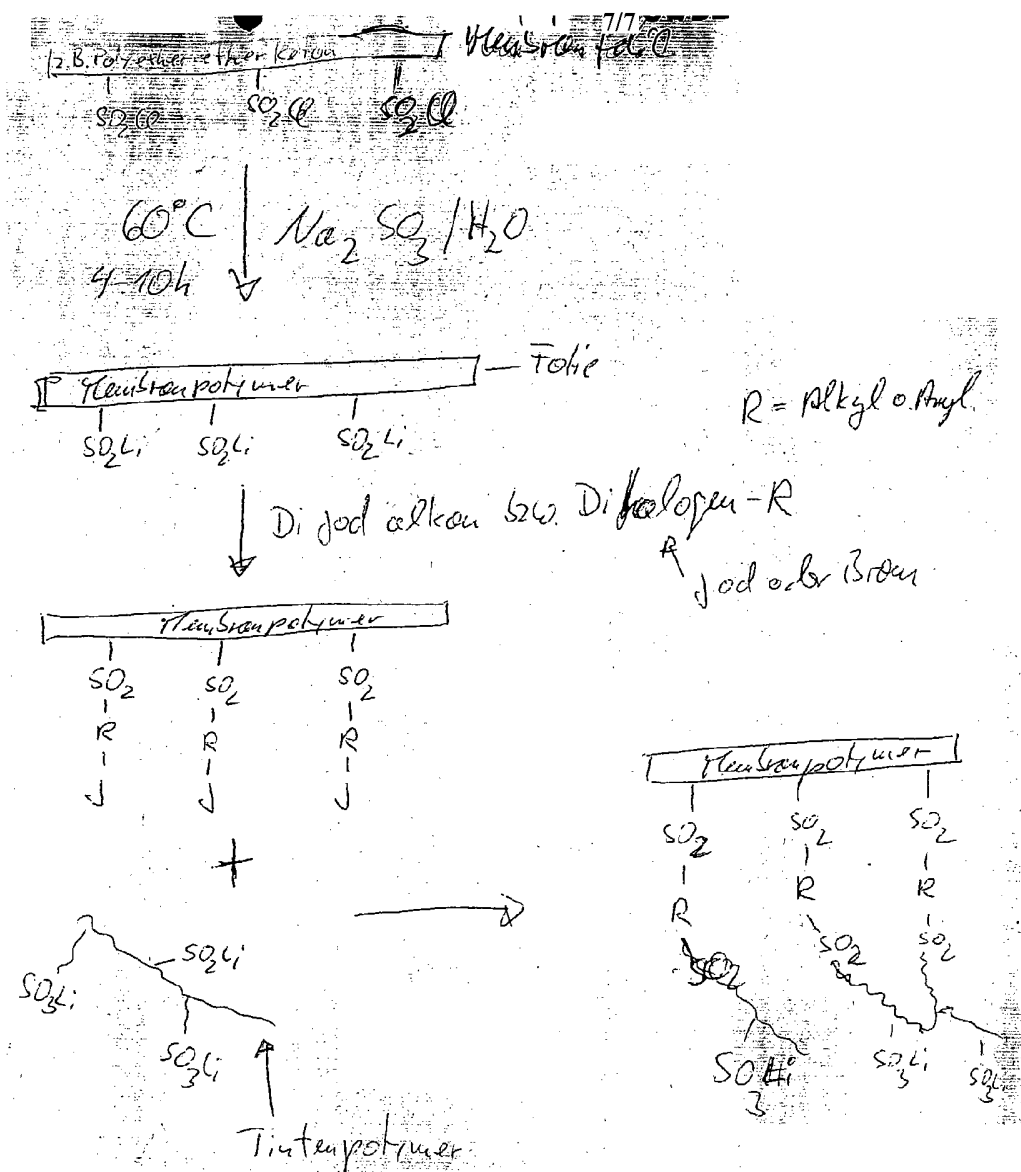 7/7
z.B. Polyetheretherketon
SO2Cl SO2Cl SO2Cl
60°C Na2SO3/H2O
4-10h
Membranpolymer — Folie
R = Alkyl o. Aryl.
SO2Li SO2Li SO2Li
Di jod alkan bzw. Dihalogen-R
Jod oder Brom
Membranpolymer
SO2 SO2 SO2
R R R
J J J
+
SO3Li SO2Li
SO3Li
Tintenpolymer
Membranpolymer
SO2 SO2 SO2
R R R
SO2 SO2 SO2
SO3Li SO3Li SO3Li